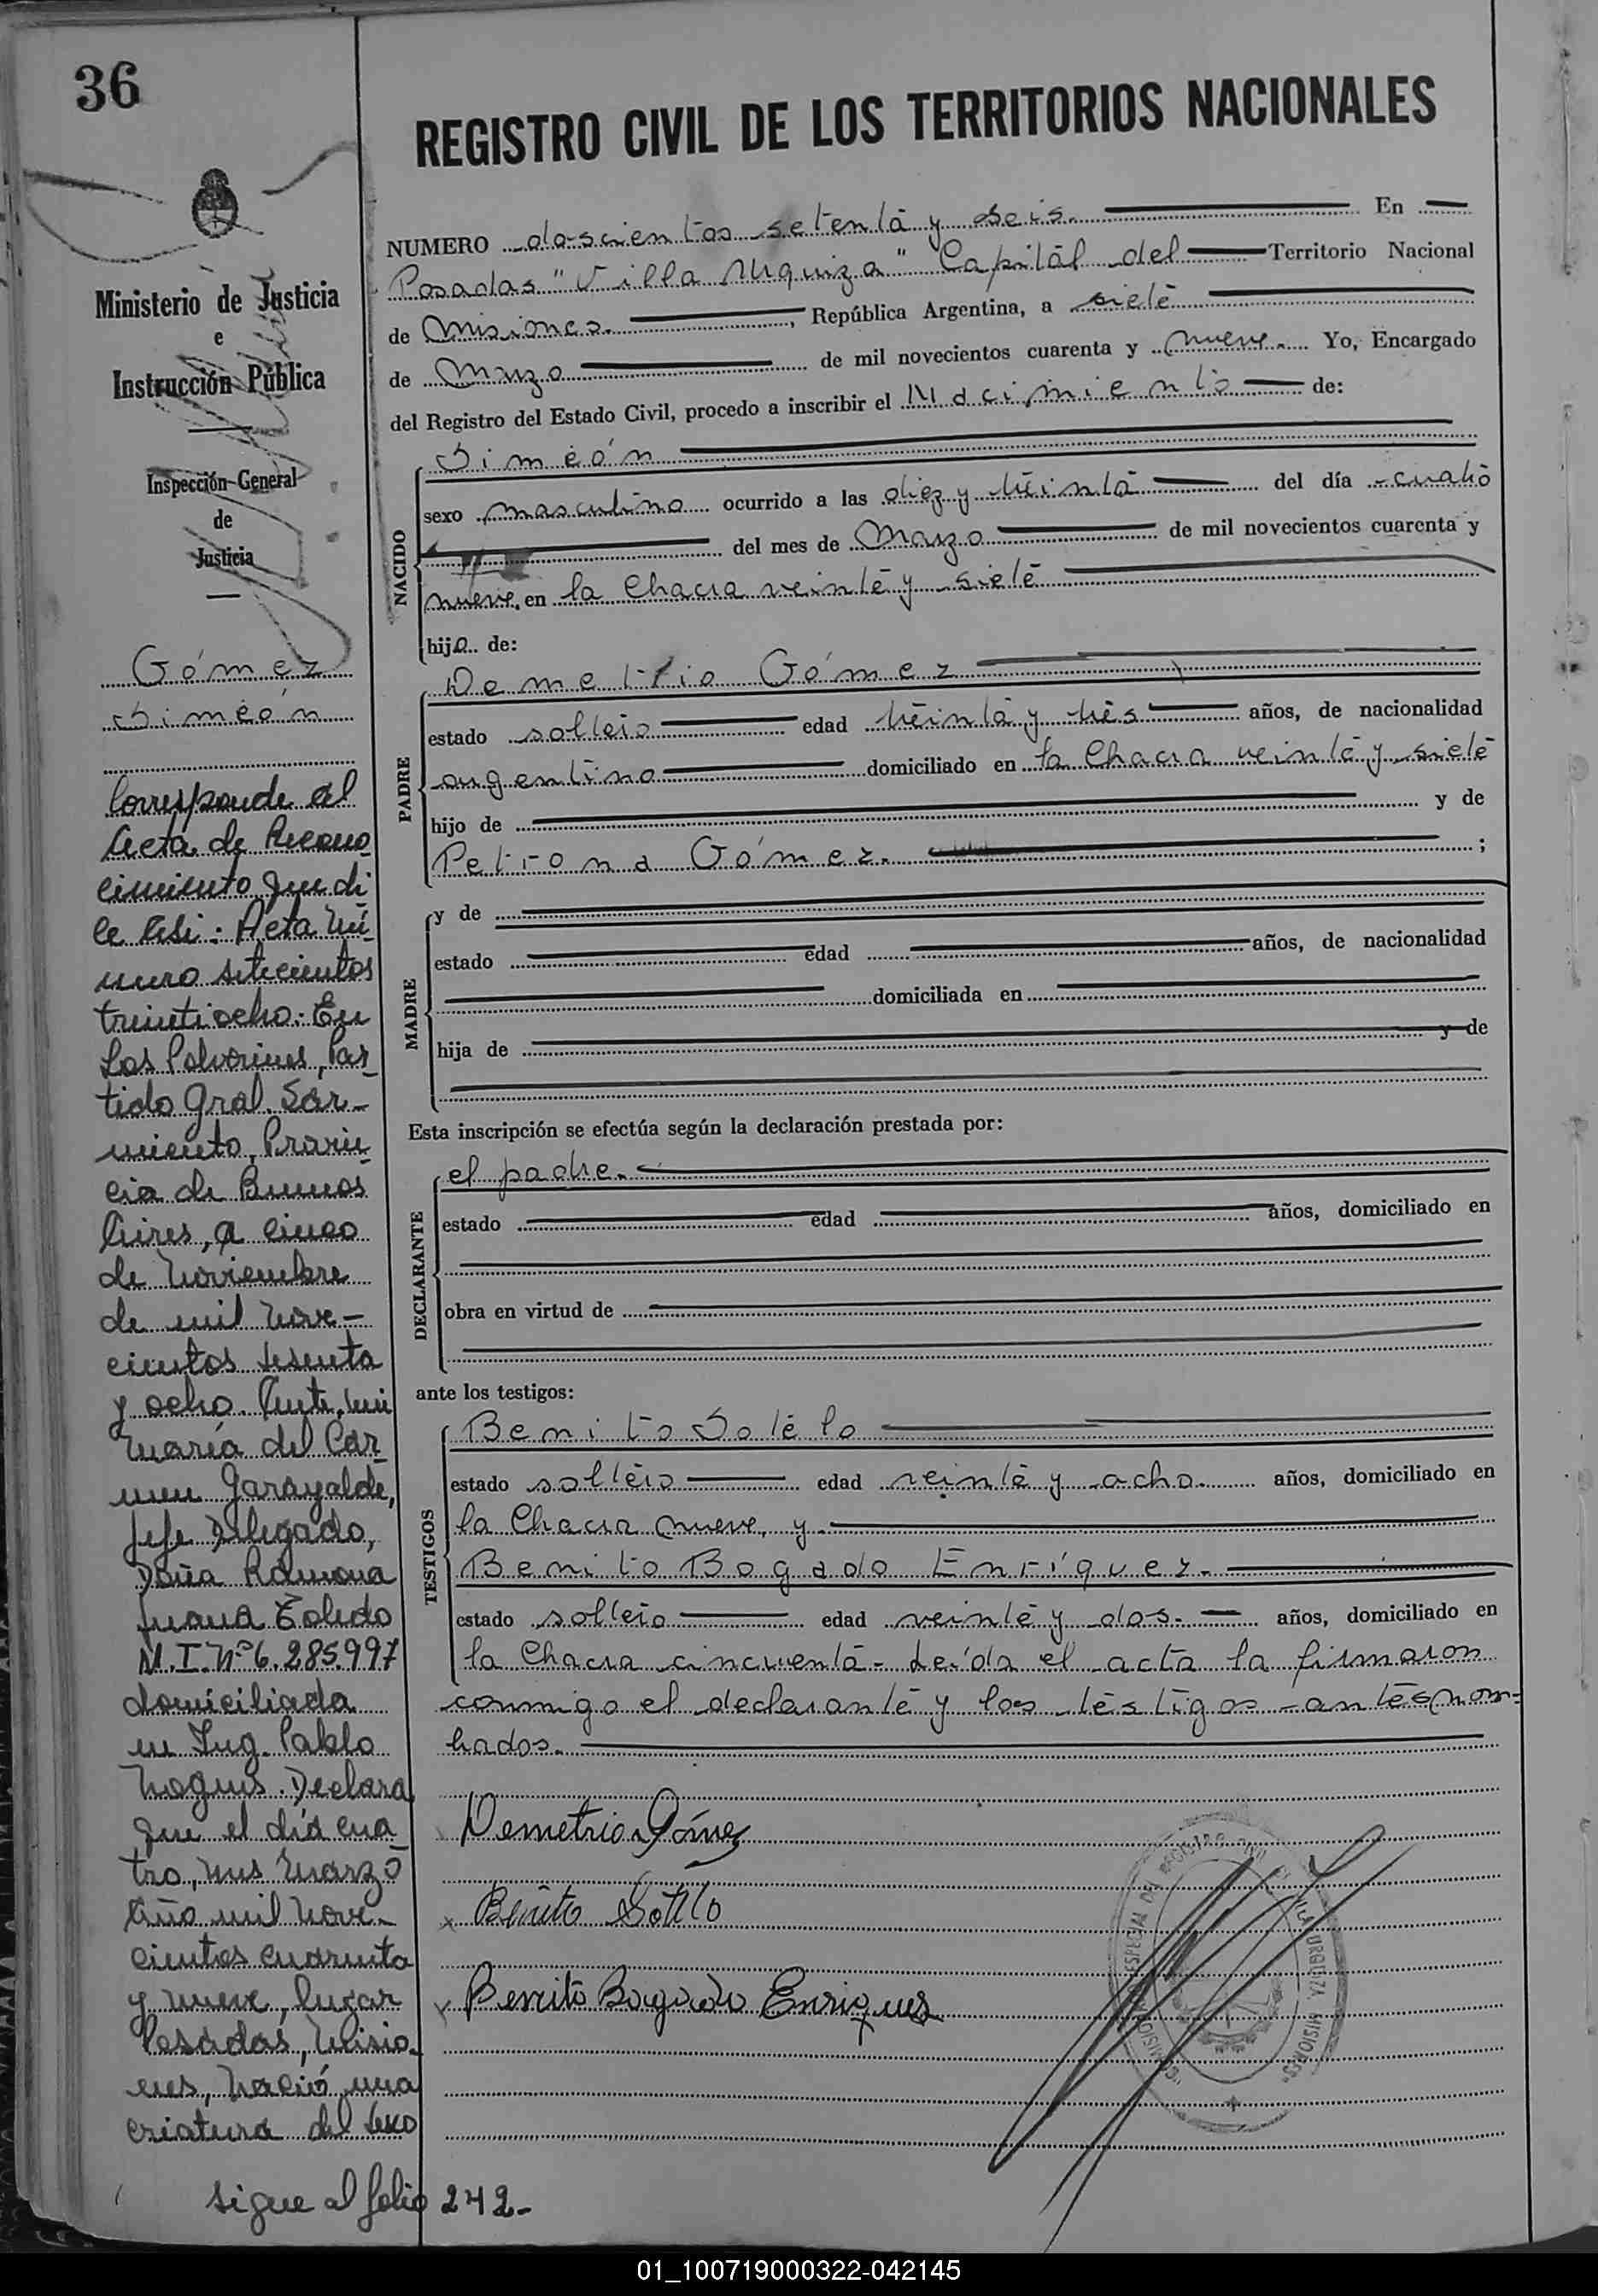 36
REGISTRO CIVIL DE LOS TERRITORIOS NACIONALES
Ministerio de Justicia
e
Instrucción Pública
Inspección General
de
Justicia
Gómez
Simeón
Corresponde al
Acta de Recono-
cimiento que di-
ce así: Acta Nú-
mero setecientos
treintiocho: En
Los Polvorines, Par-
tido Gral. Sar-
miento, Provin-
cia de Buenos
Aires, a cinco
de Noviembre
de mil nove-
cientos sesenta
y ocho. Ante mi
María del Car-
men Garayalde,
Jefe Delegado,
Doña Ramona
Juana Toledo
M.I. Nº 6.285.997
domiciliada
en Ing. Pablo
Nogués. Declara
que el día cua-
tro, mes Marzo
Año mil nove-
cientos cuarenta
y nueve, lugar
Posadas, Misio-
nes, nació una
criatura del sexo
sigue al folio 242-
NUMERO doscientos setenta y seis. En
Posadas "Villa Urquiza" Capital del Territorio Nacional
de Misiones. , República Argentina, a siete
de Marzo de mil novecientos cuarenta y nueve. Yo, Encargado
del Registro del Estado Civil, procedo a inscribir el Nacimiento de:
NACIDO
Simeón
sexo masculino ocurrido a las diez y treinta del día cuatro
del mes de Marzo de mil novecientos cuarenta y
nueve, en la Chacra veinte y siete
hijo de:
PADRE
Demetrio Gómez
estado soltero edad treinta y tres años, de nacionalidad
argentino domiciliado en la Chacra veinte y siete
hijo de y de
Petrona Gómez. ;
MADRE
y de
estado edad años, de nacionalidad
domiciliada en
hija de y de
Esta inscripción se efectúa según la declaración prestada por:
DECLARANTE
el padre.
estado edad años, domiciliado en
obra en virtud de
ante los testigos:
TESTIGOS
Benito Sotelo
estado soltero edad veinte y ocho. años, domiciliado en
la Chacra nueve, y
Benito Bogado Enríquez.
estado soltero edad veinte y dos. años, domiciliado en
la Chacra cincuenta - Leída el acta la firmaron
conmigo el declarante y los testigos antes nom-
brados.
Demetrio Gómez
x Benito Sotelo
x Benito Bogado Enriquez
ESPECIAL DEL REGISTRO CIVIL VILLA URQUIZA MISIONES
01_100719000322-042145